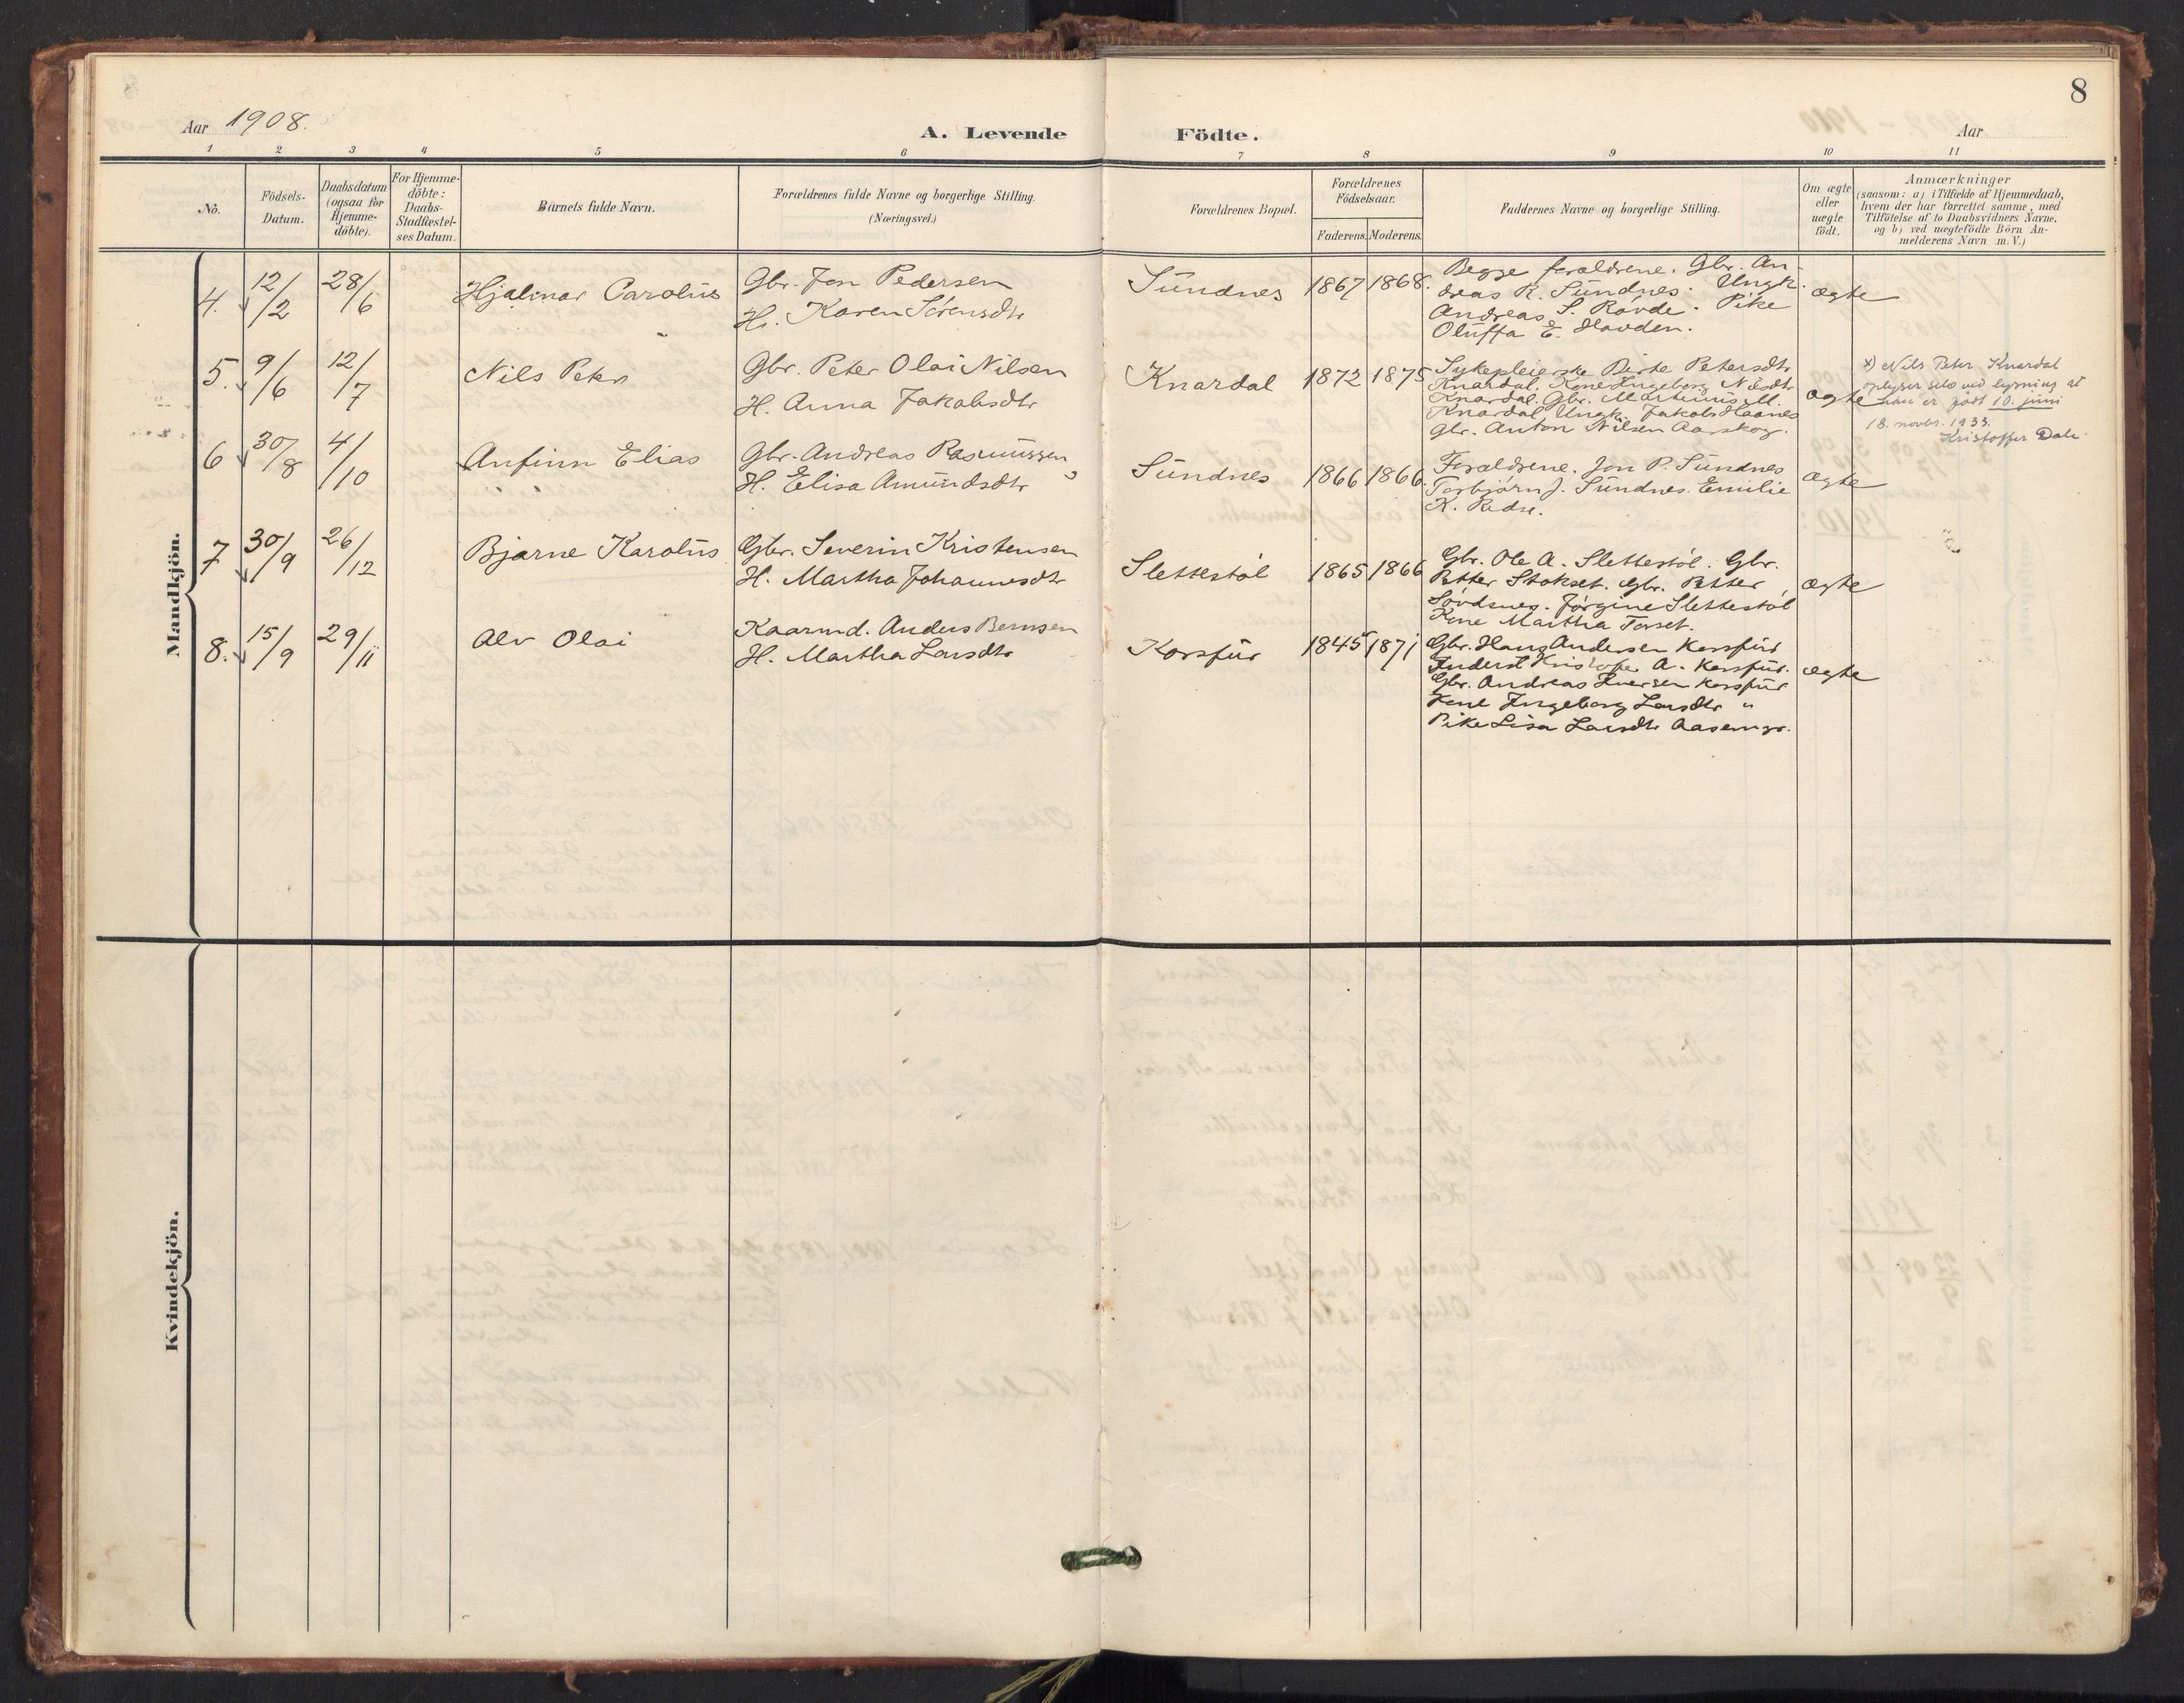 8
Aar 1908.
A. Levende Födte.
Aar
1 2 3 4 5 6 7 8 9 10 11
No.
Födsels-
Datum.
Daabsdatum
(ogsaa for
Hjemme-
döbte).
For Hjemme-
döbte:
Daabs-
Stadfæstel-
ses Datum.
Barnets fulde Navn.
Forældrenes fulde Navne og borgerlige Stilling.
(Næringsvei.)
Forældrenes Bopæl.
Forældrenes
Födselsaar.
Faderens. Moderens.
Faddernes Navne og borgerlige Stilling.
Om ægte
eller
uægte
födt.
Anmærkninger
(saasom: a) i Tilfælde af Hjemmedaab,
hvem der har forrettet samme, med
Tilföielse af to Daabsvidners Navne,
og b) ved uægtefödte Börn An-
melderens Navn m. V.)
Mandkjön.
4. 12/2 28/6 Hjalmar Carolus
Gbr. Jon Pedersen
H. Karen Sörensdtr
Sundnes 1867 1868.
Begge forældrene. Gbr. An-
dreas R. Sundnes. Ungk.
Andreas S. Rovde. Pike
Oluffa E. Hovden.
ægte
5. 9/6 12/7 Nils Peter
Gbr. Peter Olai Nilsen
H. Anna Jakobsdtr
Knardal 1872 1875
Sykepleierske Petersdtr
Knardal. Kone Ingeborg Nilsdtr
Knardal. Gbr. Martinus M.
Knardal Ungk. Jakob Haanes
Gbr. Anton Nilsen Aarskog.
ægte
x) Nils Peter Knardal
oplyser selv ved lysning at
han er født 10. juni
18. novbr. 1933.
Kristoffer Dale.
6 30/8 4/10 Anfinn Elias
Gbr. Andreas Rasmussen
H. Elisa Amundsdtr
Sundnes 1866 1866.
Forældrene. Jon P. Sundnes
Torbjørn J. Sundnes. Emilie
K.
ægte
7 30/9 26/12 Bjarne Karolus
Gbr. Severin Kristensen
H. Martha Johannesdtr
Slettestöl 1865 1866
Gbr. Ole A. Slettestöl. Gbr.
Petter Stokset. Gbr. Petter
Sövdsnes. Jörgine Slettestöl
Kone Martha Torset.
ægte
8. 15/9 29/11 Alv Olai
Kaarmd. Anders Bernsen
H. Martha Larsdtr
Korsfur 1845 1871
Gbr. Hans Andersen Korsfur
Kristofer A. Korsfur.
Gbr. Andreas Iversen Korsfur
Kone Ingeborg Larsdtr "
Pike Lisa Larsdtr
ægte
Kvindekjön.